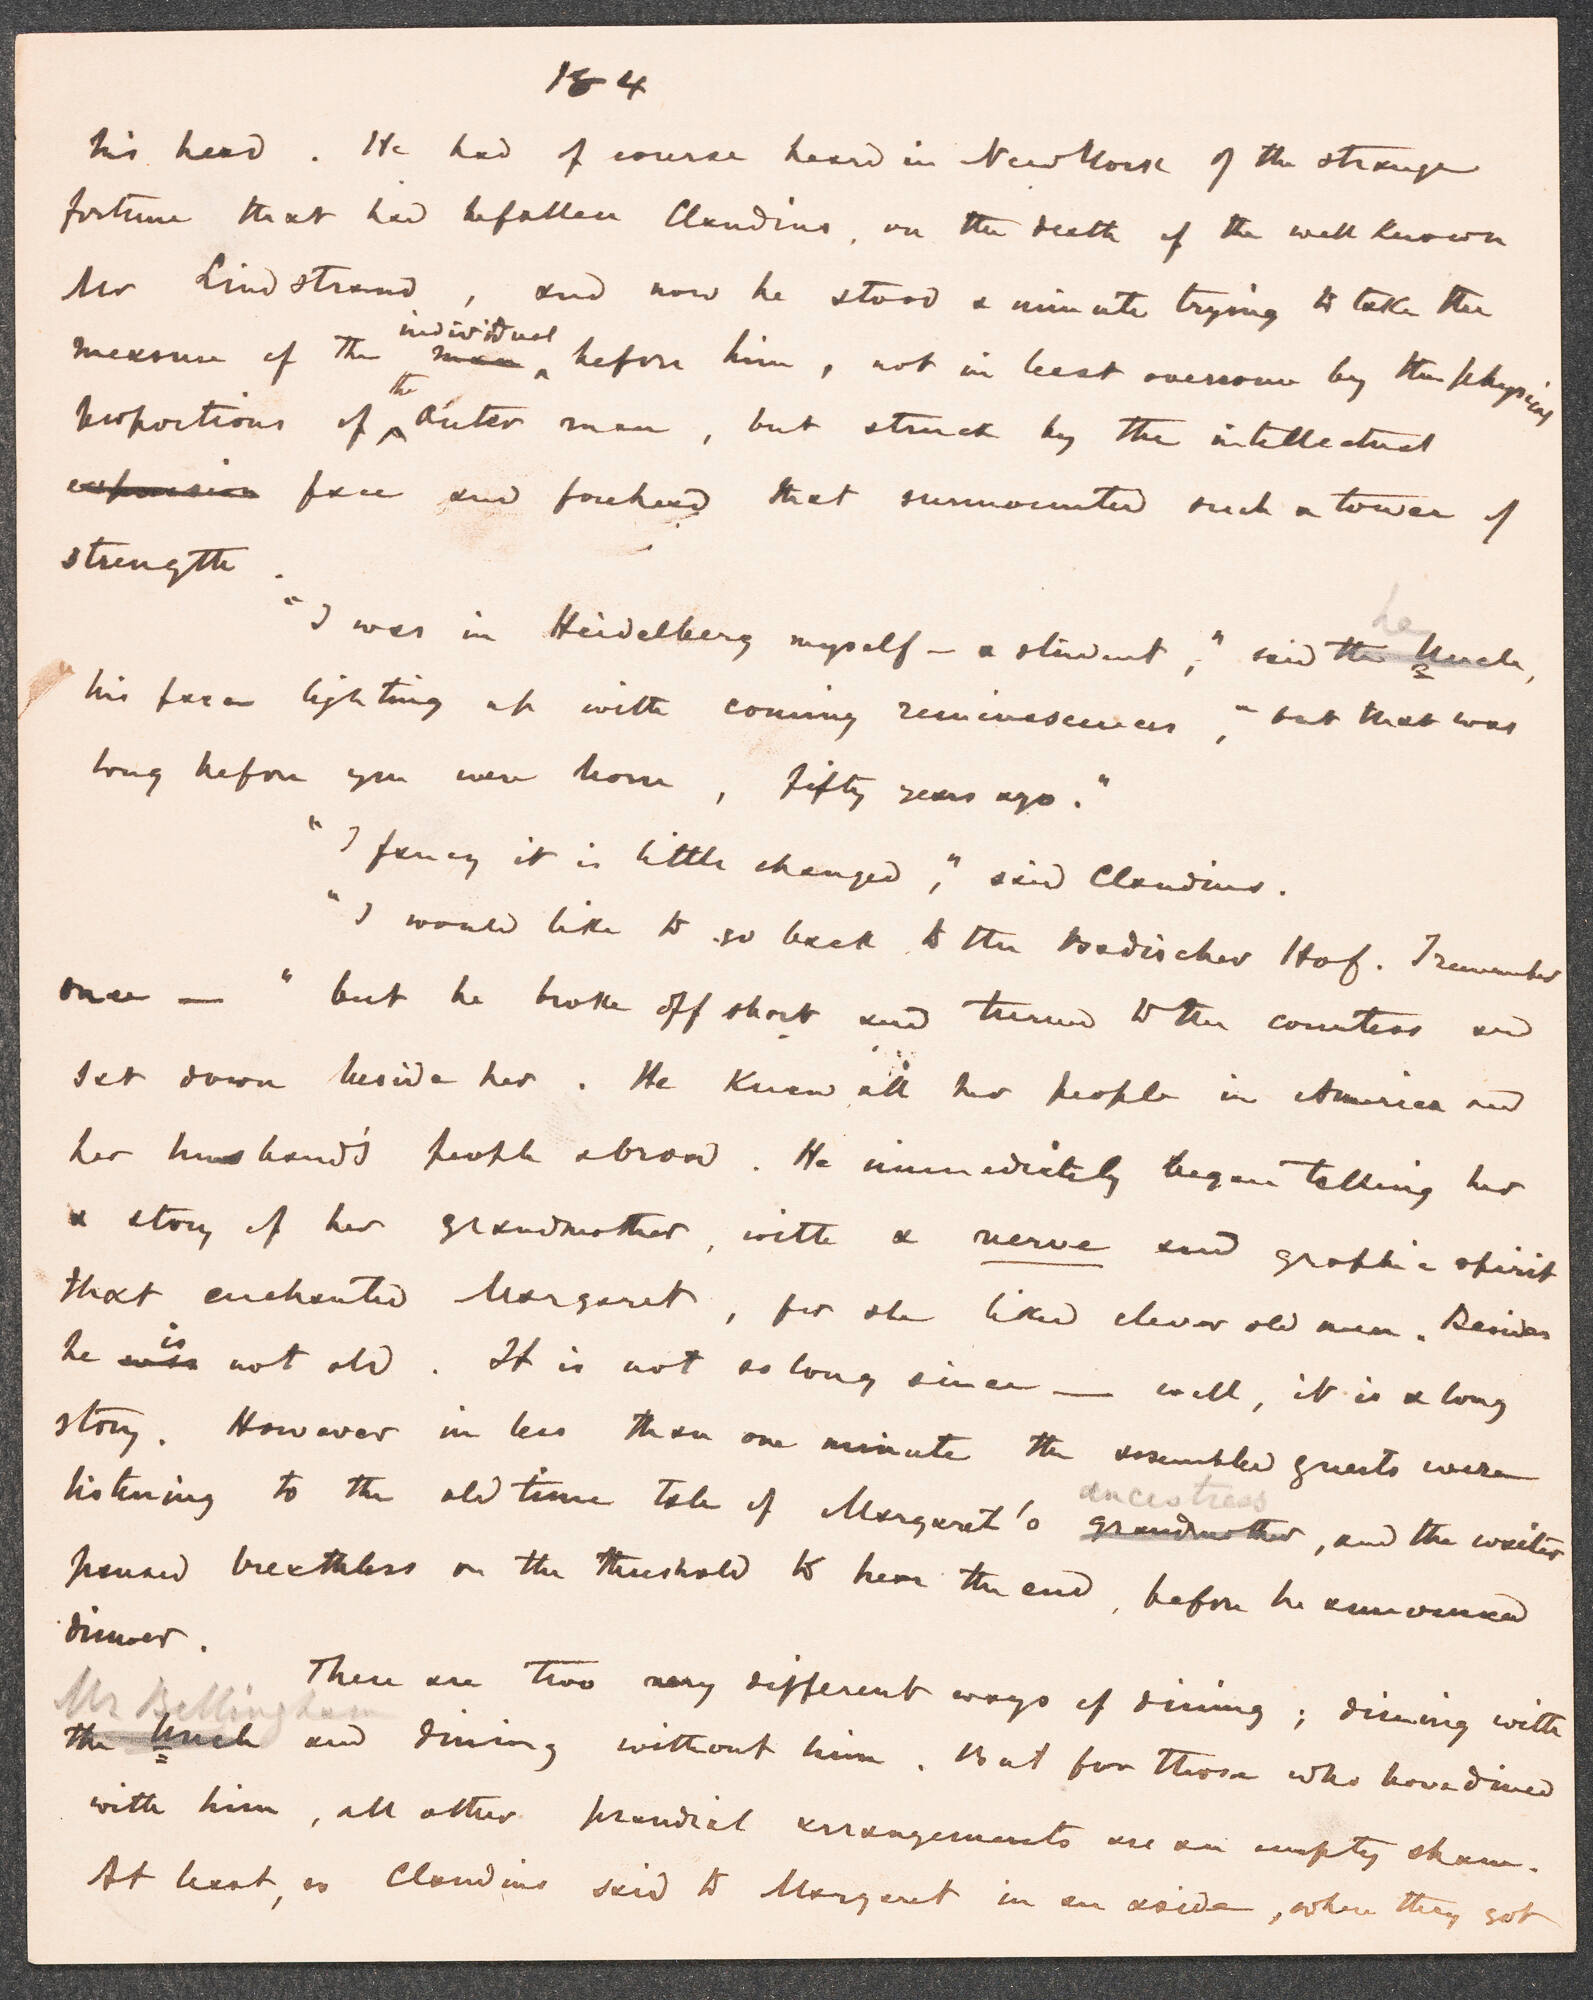 184
his head. He had of course heard in New York of the strange
fortune that had befallen Claudius, on the death of the well known
Mr Lindstrand, and now he stood a minute trying to take the
individual
measure of the man before him, not in least overcome by the physical
the
proportions of outer man, but struck by the intellectual
expression face and forehead that surmounted such a tower of
strength.
he
"I was in Heidelberg myself – a student," said the Uncle,
his face lighting up with coming reminiscences, "but that was
long before you were born, fifty years ago."
"I fancy it is little changed," said Claudius.
"I would like to go back to the Badischer Hof. I remember
once — " but he broke off short and turned to the countess and
sat down beside her. He knew all her people in America and
her husband's people abroad. He immediately began telling her
a story of her grandmother, with a nerve and graphic spirit
that enchanted Margaret, for she liked clever old men. Besides
is
he was not old. It is not so long since — well, it is a long
story. However in less than one minute the assembled guests were
ancestress
listening to the old time tale of Margaret's grandmother, and the waiter
paused breathless on the threshold to hear the end, before he announced
dinner.
There are two very different ways of dining; dining with
Mr Bellingham
the Uncle and dining without him. But for those who have dined
with him, all other prandial arrangements are an empty sham.
At least, so Claudius said to Margaret in an aside, when they got